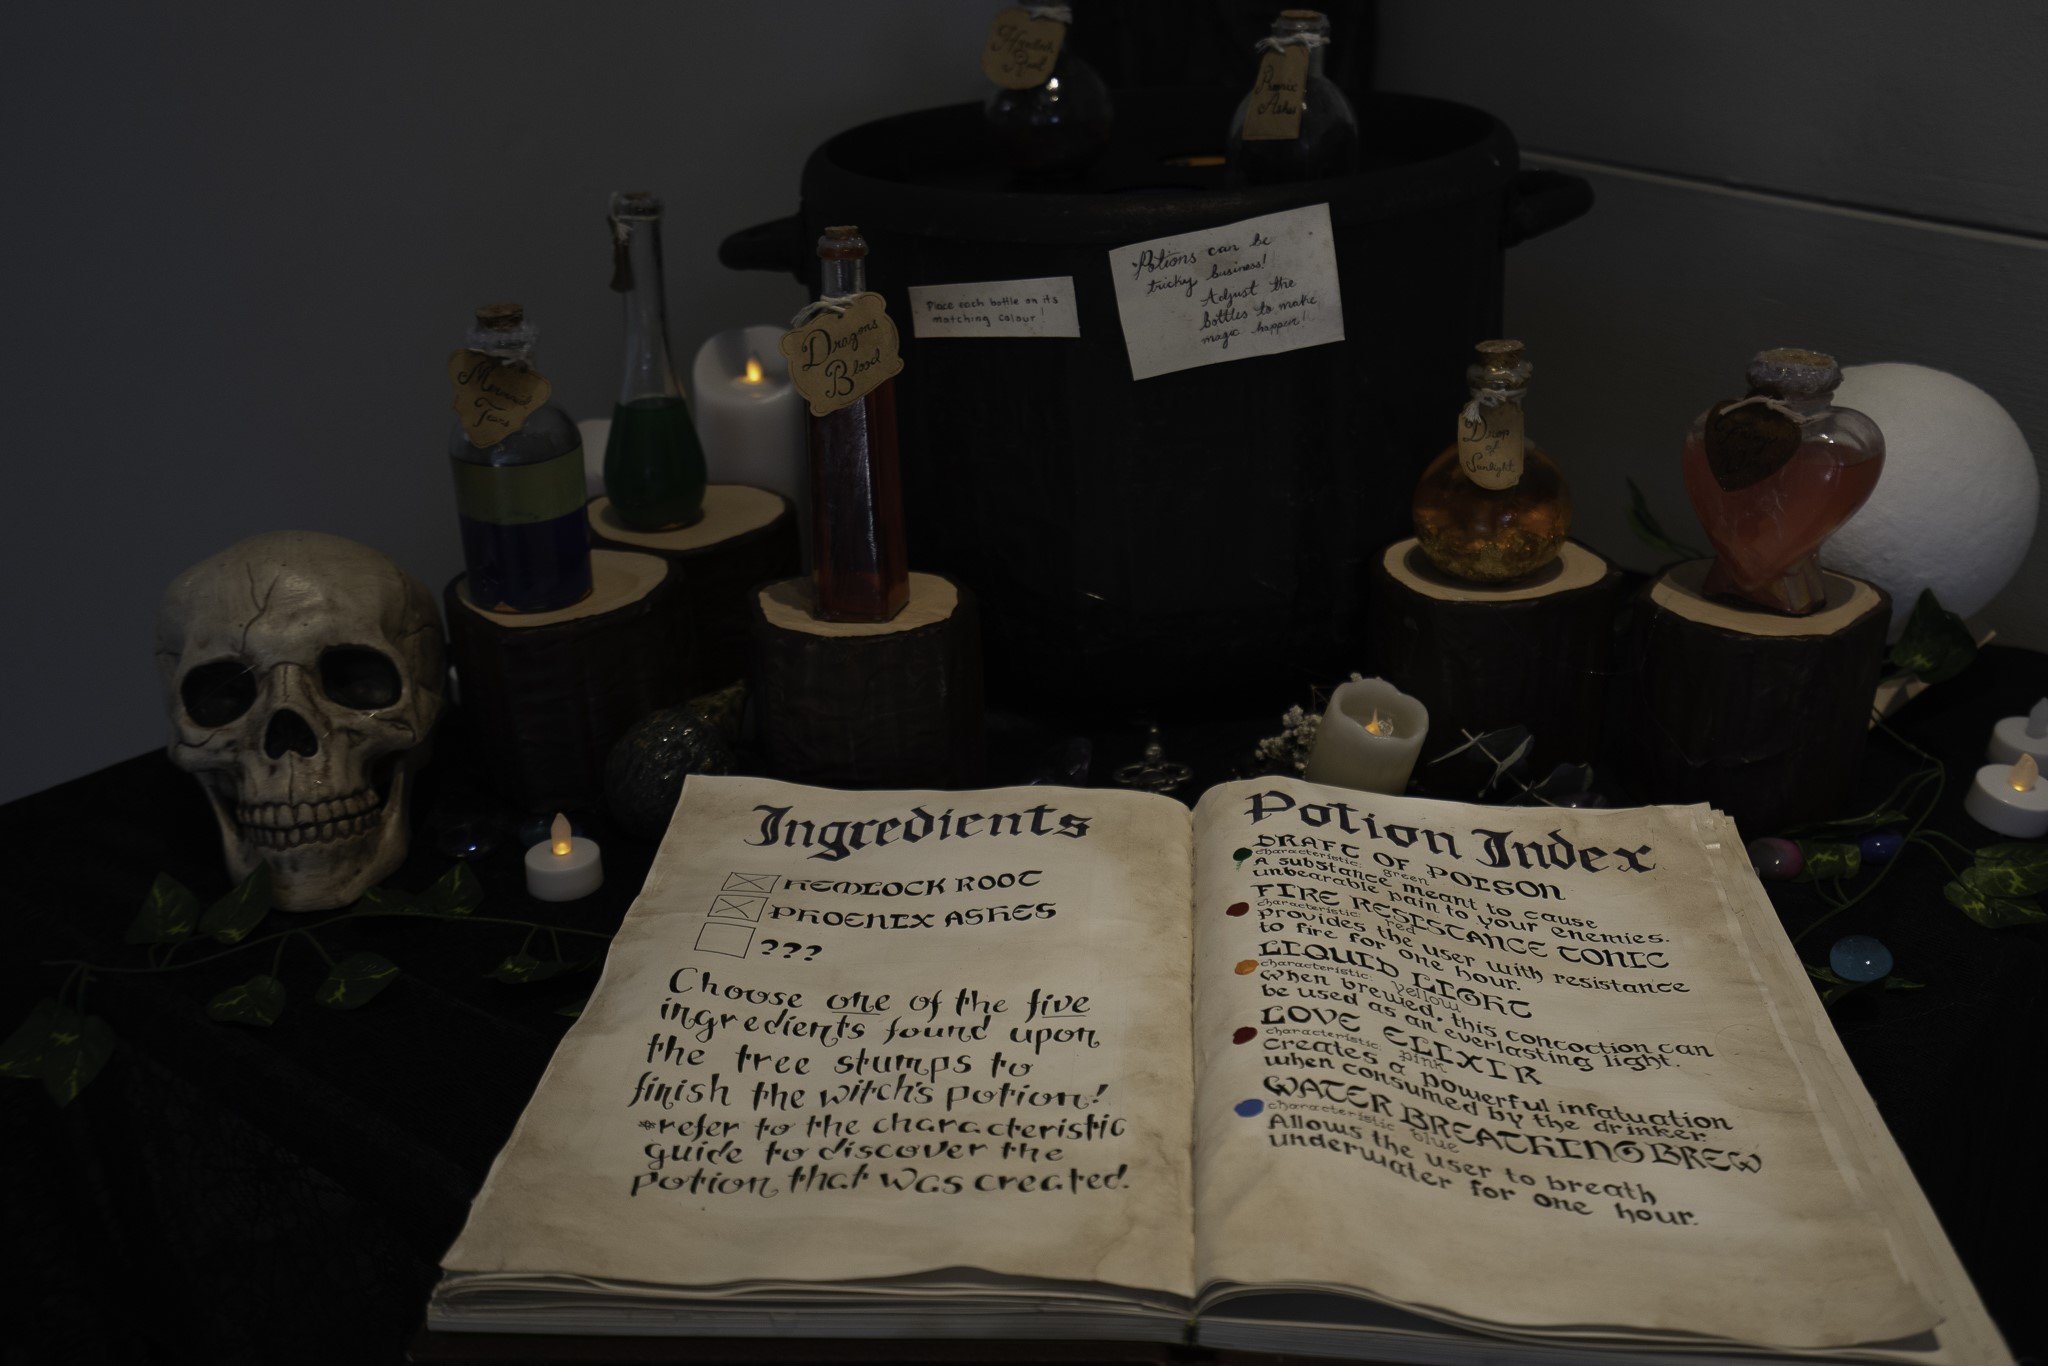 Hemlock
Root
Phoenix
Ashes
Place each bottle on its
matching colour!
Potions can be
tricky business!
Adjust the
bottles to make
magic happen!
Mermaid
Tears
Dragons
Blood
Drop
of
Sunlight
Ingredients
HEMLOCK ROOT
PHOENIX ASHES
???
Choose one of the five
ingredients found upon
the tree stumps to
finish the witch's potion!
*refer to the characteristic
guide to discover the
potion that was created!
Potion Index
DRAFT OF POISON
characteristic: green
A substance meant to cause
unbearable pain to your enemies.
FIRE RESISTANCE TONIC
characteristic: red
Provides the user with resistance
to fire for one hour.
LIQUID LIGHT
characteristic: yellow
When brewed, this concoction can
be used as an everlasting light.
LOVE ELIXIR
characteristic: pink
Creates a powerful infatuation
when consumed by the drinker.
WATER BREATHING BREW
characteristic: blue
Allows the user to breath
underwater for one hour.